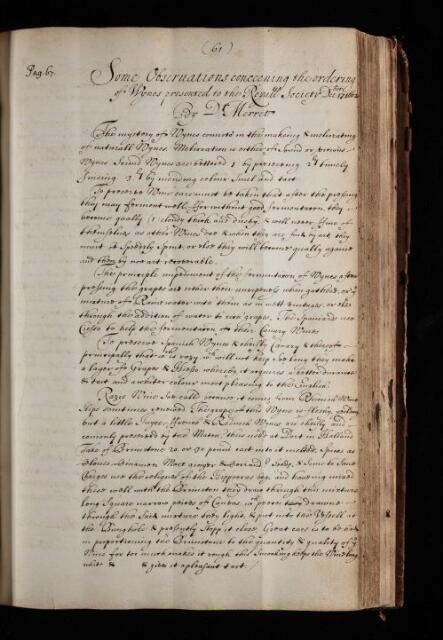 (61)
Pag. 67.
Some Observations concerning the ordering
of Wynes presented to the Royll Society Decr 17 1662
By Dr Merret
The mystery of Wynes consists in the makeing & meliorating
of naturall Wynes. Melioration is either of sound or vicious
Wynes Sound Wynes are bettered 1 by preserving 2ly timely
fineing 3ly by mending colour Smell and tast
To preserve Wine care must be taken that after the pressing
they may ferment well, for without good fermentation they
become qually (i cloudy thick and dusky & will never fine of
themselves as other Wines doe & when they are by art they
must be Speedily Spent, or else they will become qually againe
and then by noe art recoverable.
The principle impediment of the fermentation of Wynes after
pressing the grapes are either their unripeness when gathered, or ye
mixture of Raine water with them as in wett vintages, or else
through the addition of water to rich grapes. The Spaniards use
to help the fermentation of their Canary Wines
To preserve Spanish Wynes & cheifly Canary & thereof
principally that is razy wch will not keep so long they make
a layer of Grapes & whereby it acquires a better durance
& tast and a whiter colour most pleasing to the English.
Razie Wine is so called because it comes from Rhenish Wine
Slips sometimes renewed. The grape of this Wyne is fleshy, yeilding
but a little Juyce. & Rhenish Wynes are cheifly and
comonly preserved by the Match, thus used at Dort in Holland
Take of Brimstone 20 or 30 pound cast into it melted Spices as
Cloves Cinamon Mace ginger & Coriand Seeds, & some to save
Charges use the reliques of the Hippocras bag, and haveing mixed
these well with the Brimston they draw through this mixture
long Square narrow pieces of Canvas wch pieces thus drawne
through the said mixture they light, & put into the Vessell at
the Bunghole & presently Stop it close. Great care is to be had
in proportioning the Brimstone to the quantity & quality of ye
Wine for too much makes it rough this Smoaking keeps the Wine long
white & & gives it a pleasant tast.